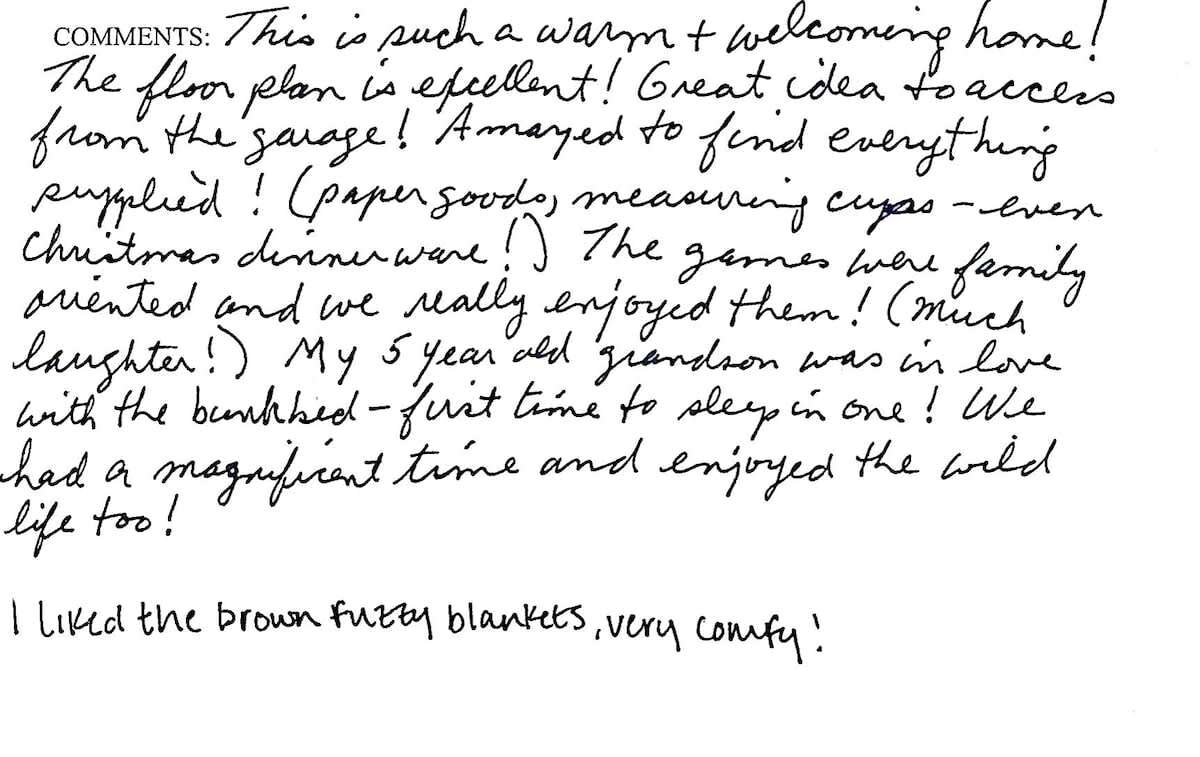 COMMENTS: This is such a warm + welcoming home!
The floor plan is excellent! Great idea to access
from the garage! Amazed to find everything
supplied! (paper goods, measuring cups - even
Christmas dinnerware!) The games were family
oriented and we really enjoyed them! (Much
laughter!) My 5 year old grandson was in love
with the bunkbed - first time to sleep in one! We
had a magnificent time and enjoyed the wild
life too!
I liked the brown fuzzy blankets, very comfy!